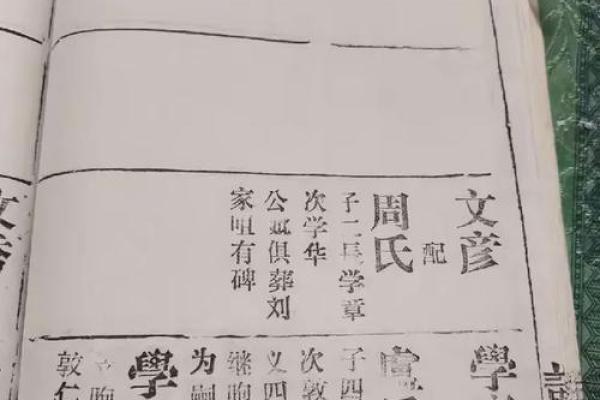 文彦
配
周氏
子二長学章
次学华
公妣俱葬刘
家咀有碑
學
盧
子四
次敦
义四
继晌
为嗣
學
晌
敦仁
文